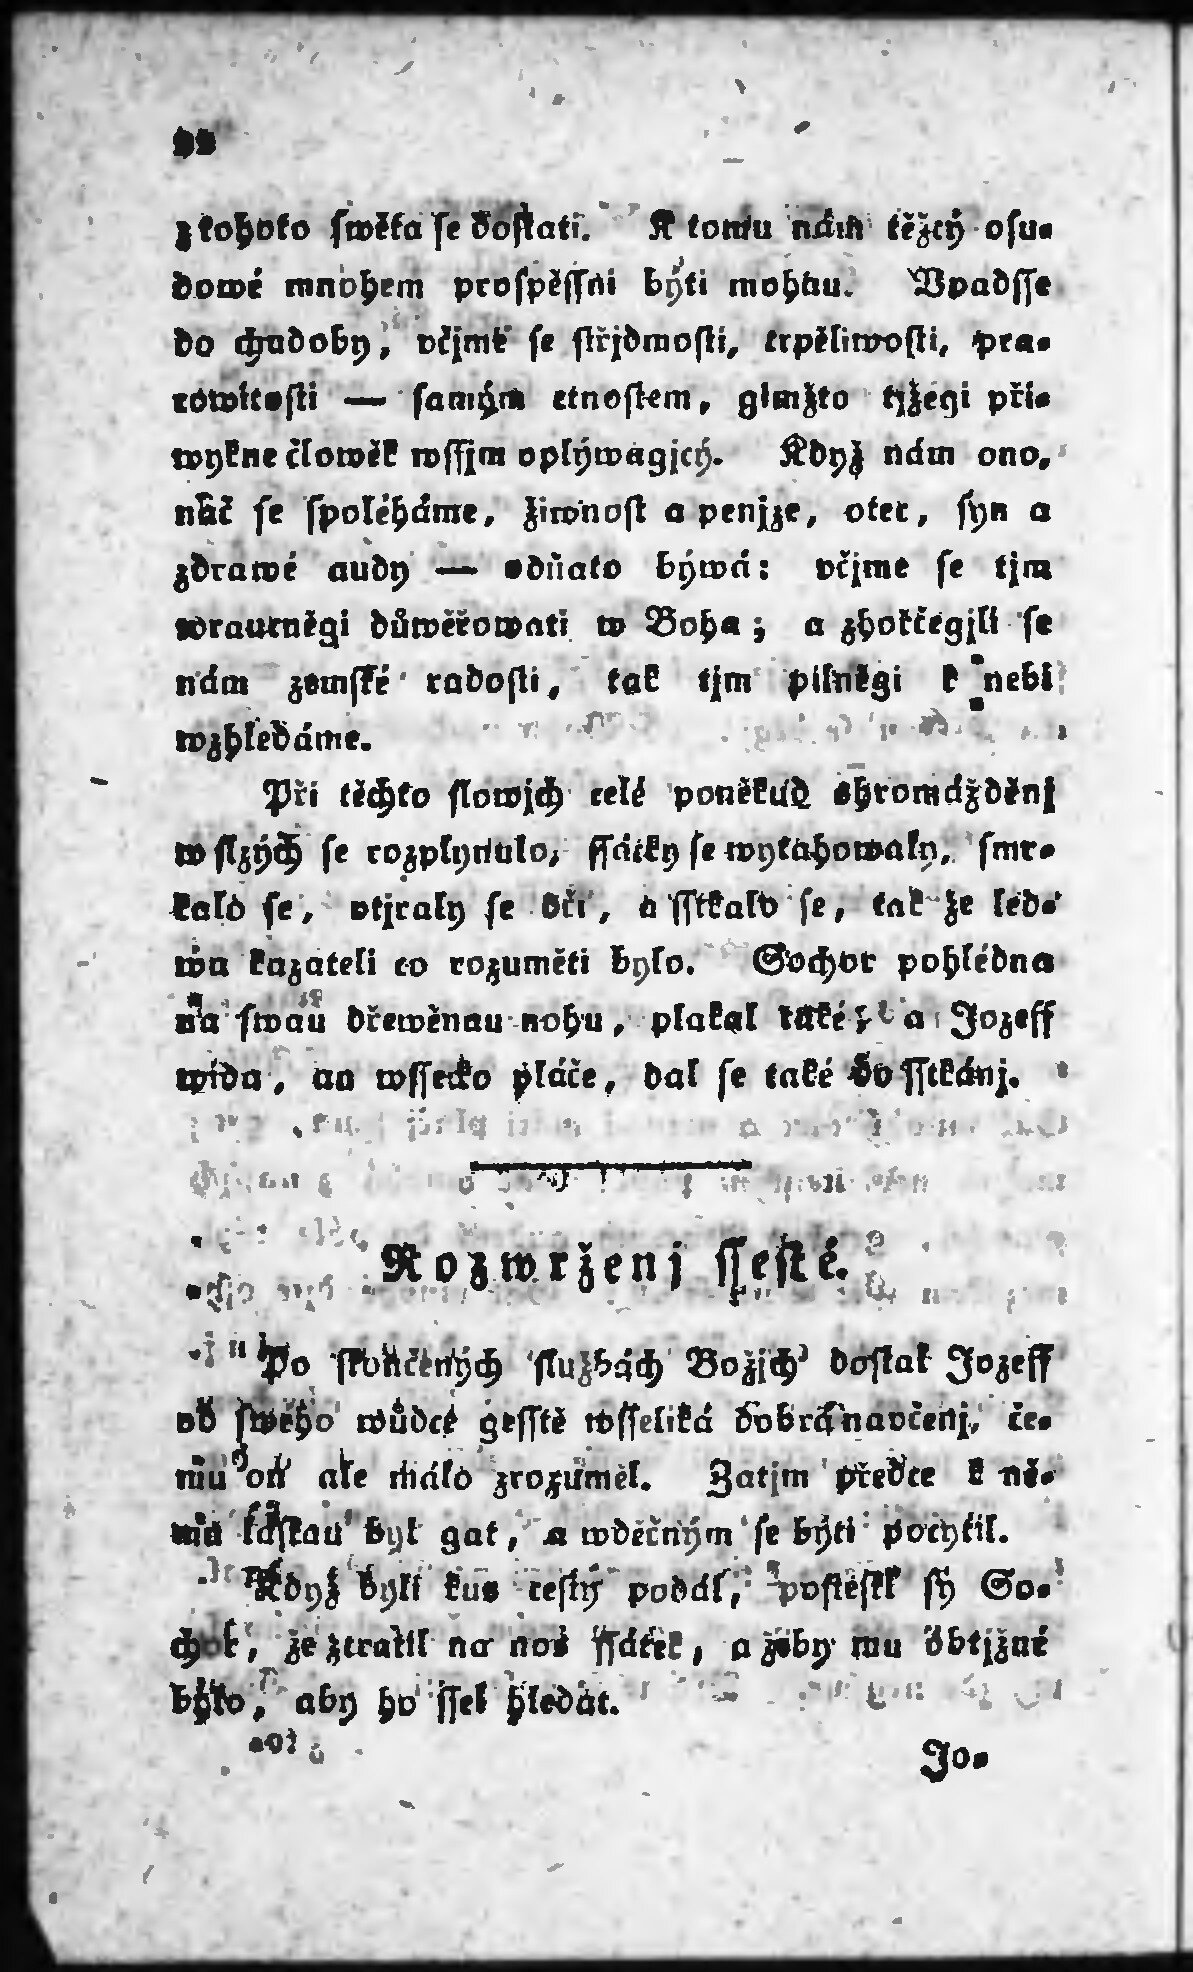 z tohoto ſwěta ſe doſtati. K tomu nám těžcý oſu-
dowé mnohem proſpěſſni býti mohau. Vpadſſe
do chudoby, včjme ſe ſtřjdmoſti, trpěliwoſti, pra-
cowitoſti — ſamým ctnoſtem, gimžto tjžegi při-
wykne člowěk wſſjm oplýwagjcý. Když nám ono,
nač ſe ſpoléháme, žiwnoſt a penjze, otec, ſyn a
zdrawé audy — odňato býwá: včjme ſe tjm
wraucněgi důwěřowati w Boha; a zhořčegjli ſe
nám zemſké radoſti, tak tjm pilněgi k nebi
wzhledáme.
Při těchto ſlowjch celé poněkud ſhromážděnj
w ſlzých ſe rozplynulo, ſſátky ſe wytahowaly, ſmr-
kalo ſe, vtjraly ſe oči, a ſſtkalo ſe, tak že led-
wa kazateli co rozuměti bylo. Sochor pohlédna
na ſwau dřewěnau nohu, plakal také; a Jozeff
wida, an wſſecko pláče, dal ſe také do ſſtkánj.
Rozwrženj ſſeſté.
Po ſkončených ſlužbách Božjch doſtal Jozeff
od ſwého wůdce geſſtě wſſeliká dobrá navčenj, če-
mu on ale málo zrozuměl. Zatjm předce k ně-
mu láſkau byl gat, a wděčným ſe býti pocytil.
Když byli kus ceſty podál, poſtěſkl ſy So-
chor, že ztratil na nos ſſátek, a žeby mu obtjžné
bylo, aby ho ſſel hledat.
Jo-